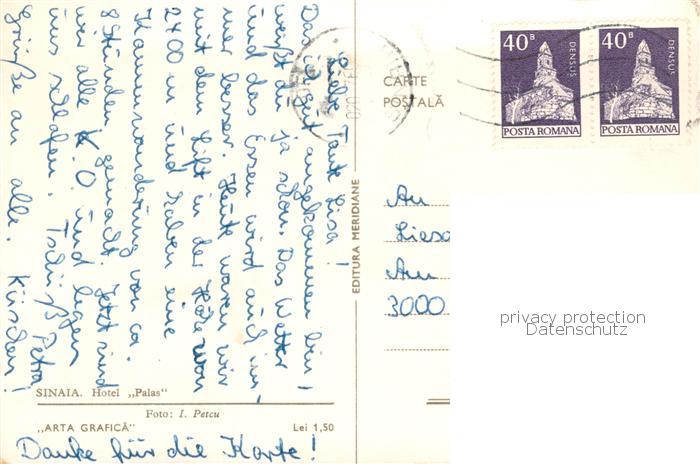 Liebe Tante Lisa!
Daß ich gut angekommen bin,
weißt du ja schon. Das Wetter
und das Essen wird auch im-
mer besser. Heute waren wir
mit dem Lift in der Höhe von
2400 m und haben eine
Kammwanderung von ca.
8 Stunden gemacht. Jetzt sind
wir alle K.O und legen
uns schlafen. Tschüß Petra!
Grüße an alle. Küßchen!
SINAIA. Hotel „Palas“
Foto: I. Petcu
„ARTA GRAFICĂ“ Lei 1,50
Danke für die Karte!
EDITURA MERIDIANE
CARTE
POȘTALĂ
40 B
DENSUȘ
POSTA ROMANA
40 B
DENSUȘ
POSTA ROMANA
An
Am
3000
privacy protection
Datenschutz